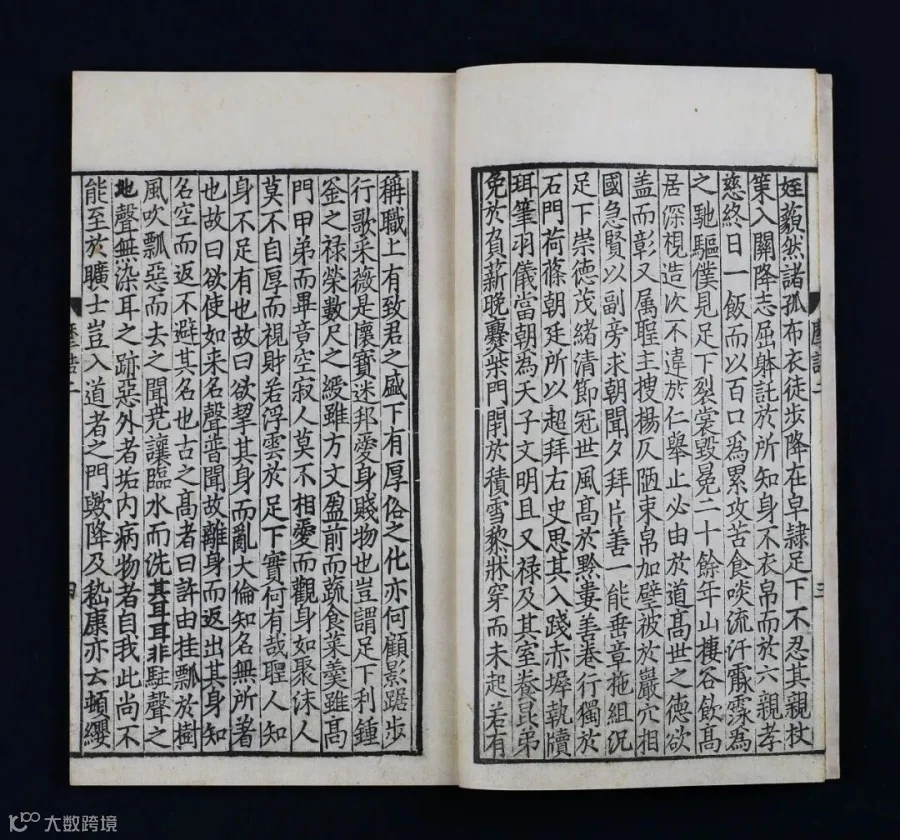 姪藐然諸孤布衣徒步降在皁隷足下不忍其親杖
策入關降志屈躰託於所知身不衣帛而於六親孝
慈終日一飯而以百口爲累攻苦食啖流汗霢霂爲
之馳驅僕見足下裂裳毀冕二十餘年山棲谷飲高
居深視造次不違於仁舉止必由於道高世之德欲
盖而彰又属聖主搜楊仄陋束帛加璧被於巖穴相
國急賢以副旁求朝聞夕拜片善一能垂章拖組况
足下崇德茂緒清節冠世風高於黔婁善卷行獨於
石門荷蓧朝廷所以超拜右史思其入踐赤墀執牘
珥筆羽儀當朝為天子文明且又禄及其室養昆弟
免於負薪晚爨柴門閇於積雪藜牀穿而未起若有
三
稱職上有致君之盛下有厚俗之化亦何顧影踞步
行歌采薇是懷寶迷邦愛身賤物也豈謂足下利鍾
釜之禄榮數尺之綬雖方丈盈前而蔬食菜羹雖高
門甲弟而畢竟空寂人莫不相愛而觀身如聚沫人
莫不自厚而視財若浮雲於足下實何有哉聖人知
身不足有也故曰欲絜其身而亂大倫知名無所著
也故曰欲使如来名聲普聞故離身而返出其身知
名空而返不避其名也古之高者曰許由挂瓢於樹
風吹瓢惡而去之聞尭讓臨水而洗其耳耳非駐聲之
地聲無染耳之跡惡外者垢内病物者自我此尚不
能至於曠士豈入道者之門歟降及嵇康亦云頓纓
四
大数跨境